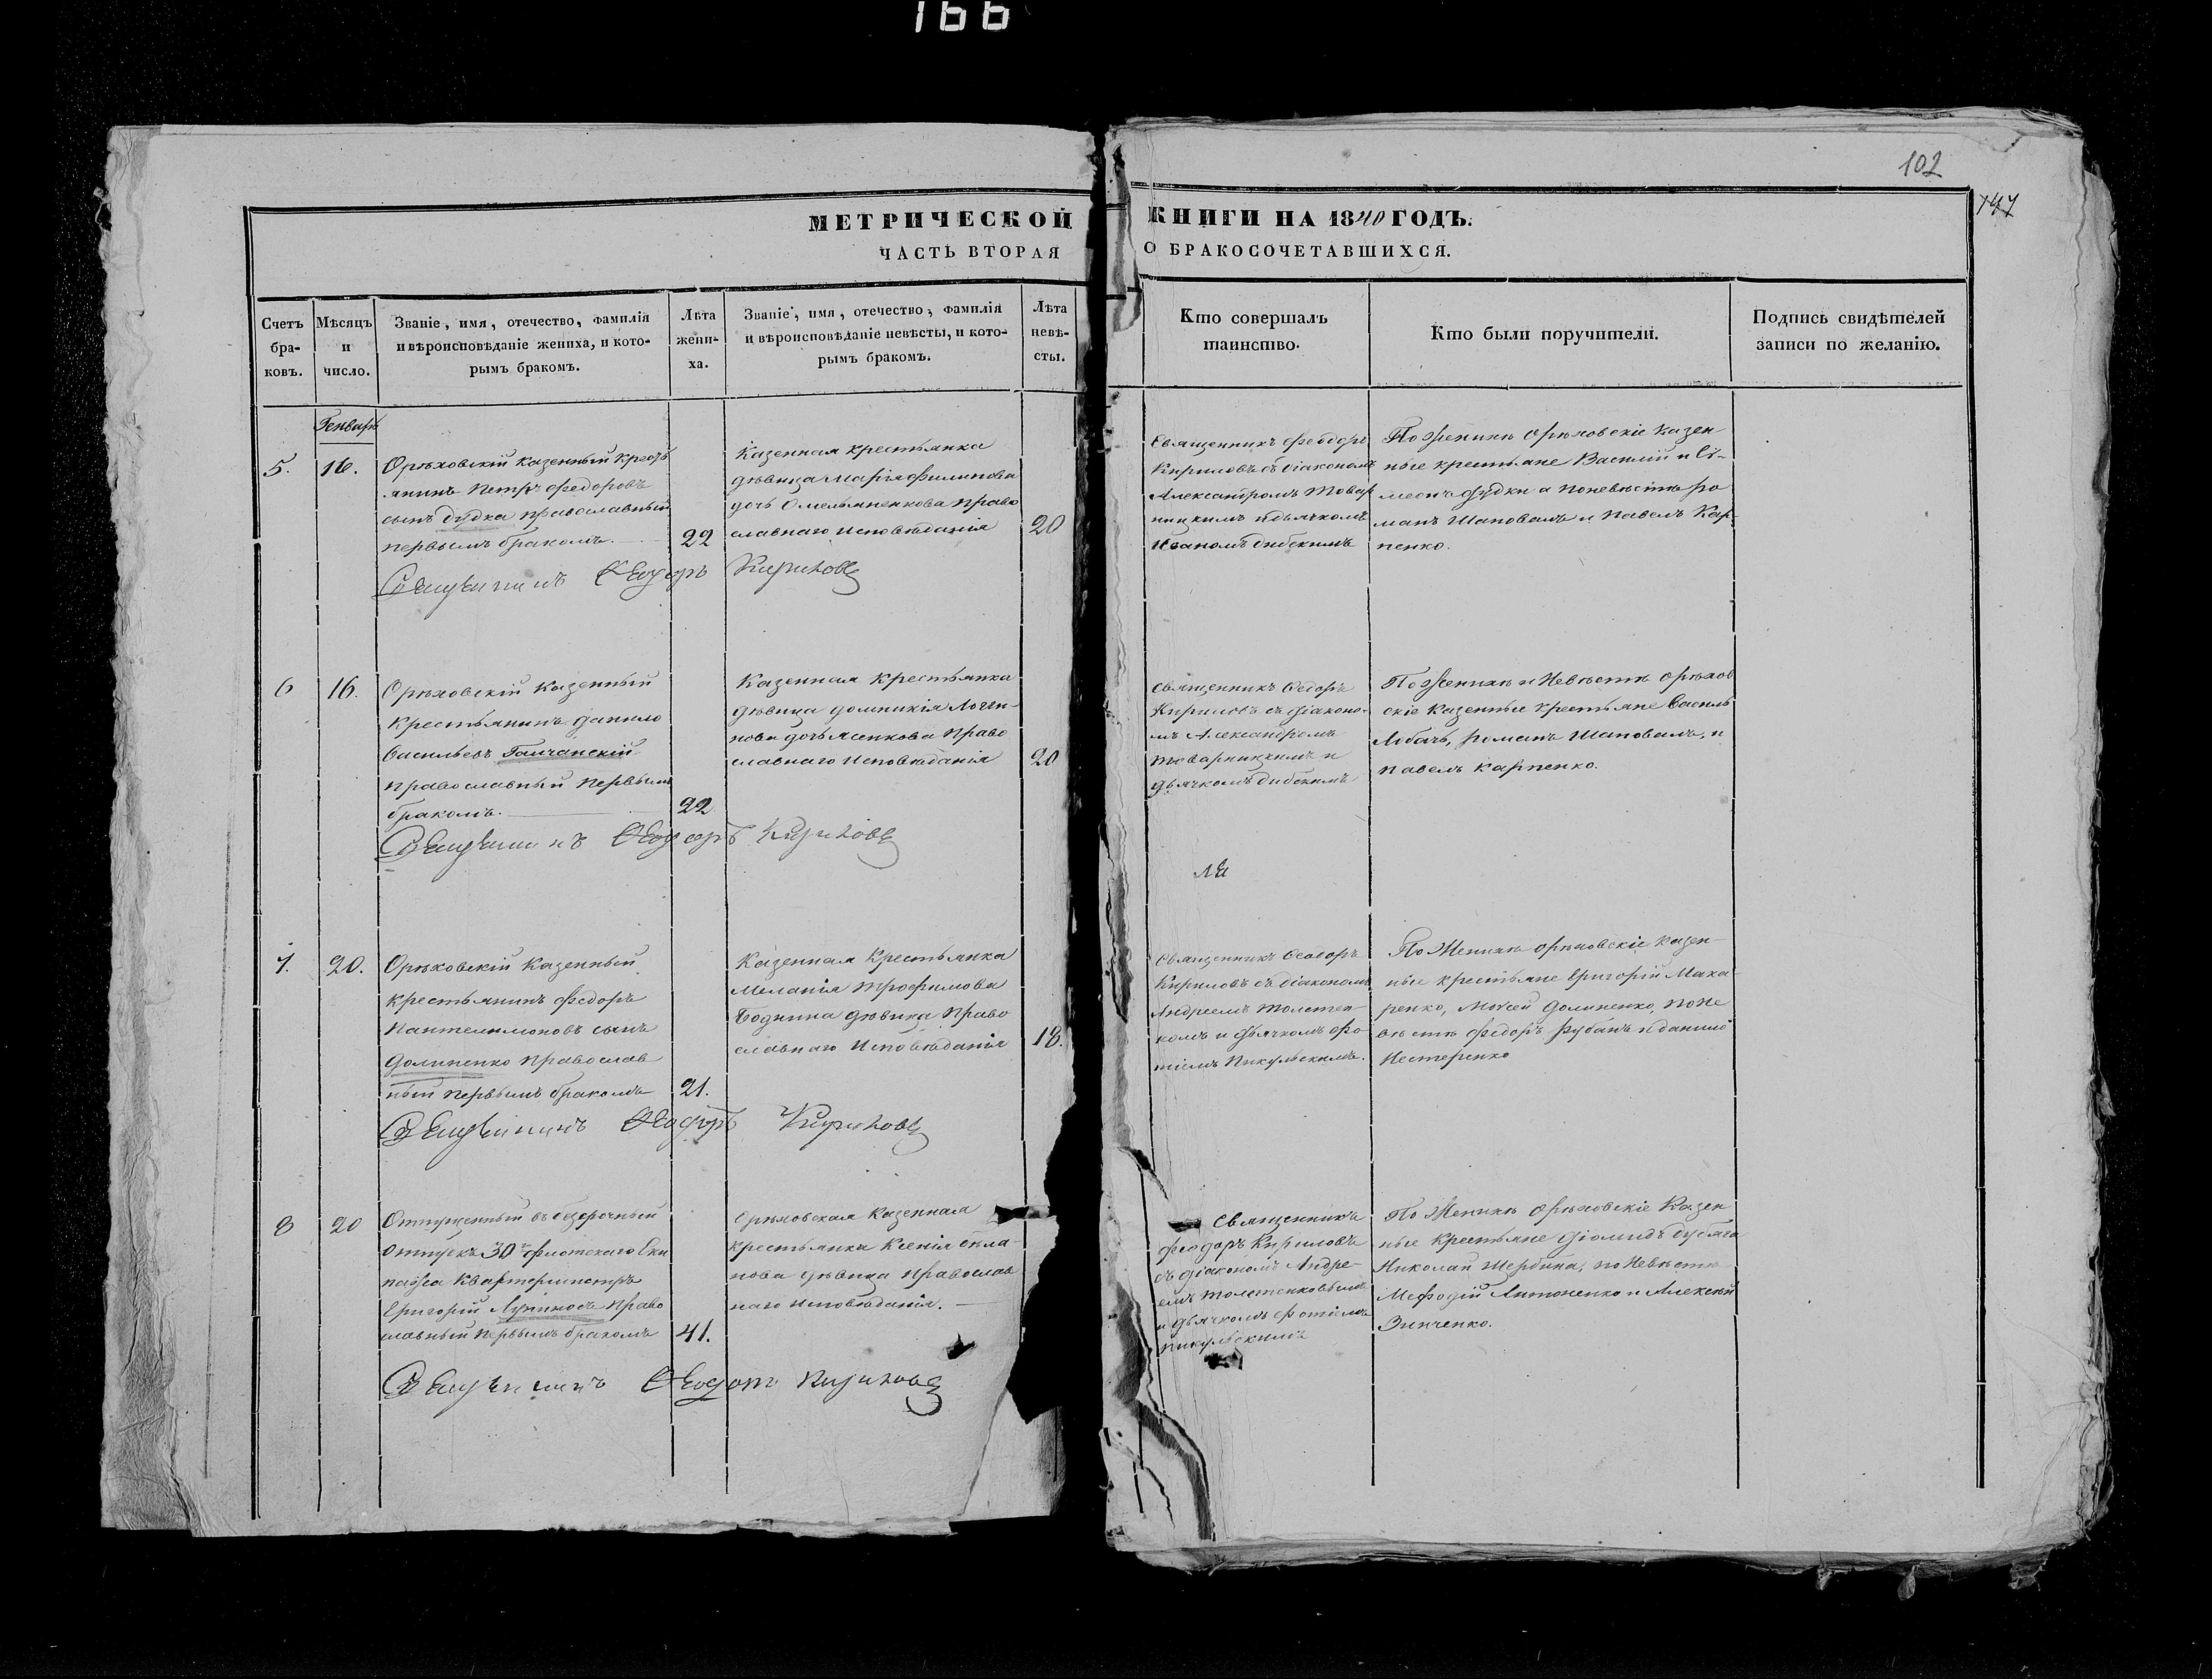 166
102
147
МЕТРИЧЕСКОЙ КНИГИ НА 1840 ГОДЪ.
ЧАСТЬ ВТОРАЯ О БРАКОСОЧЕТАВШИХСЯ.
Счетъ
бра-
ковъ.
Мѣсяцъ
и
число.
Званіе, имя, отечество, фамилія
и вѣроисповѣданіе жениха, и кото-
рымъ бракомъ.
Лѣта
жени-
ха.
Званіе, имя, отечество, фамилія
и вѣроисповѣданіе невѣсты, и кото-
рымъ бракомъ.
Лѣта
невѣ-
сты.
Кто совершалъ
таинство.
Кто были поручители.
Подпись свидѣтелей
записи по желанію.
Генварь
5.
16.
Орѣховскій казенный крестъ
янинъ Петръ Федоровъ
сынъ Дудка православный
первымъ бракомъ.
22
Казенная крестьянка
дѣвица Марія Филипова
дочь Омельяненкова Право
славнаго исповѣданія
20
Священникъ Феодоръ
Кириловъ съ діакономъ
Александромъ Товар
ницкимъ и дьячкомъ
Иваномъ Дибскимъ
По Женихѣ Орѣховскіе казен
ные крестьяне Василій и Сі-
меонъ Дудки а поневѣстѣ Ро
манъ Шаповалъ и Павелъ Кар-
пенко.
Священникъ Феодоръ Кириловъ
6
16.
Орѣховскій Казенный
Крестьянинъ Данило
Васильевъ Галчанскій
православный первымъ
бракомъ.
22
Казенная крестьянка
дѣвица Домникія Логги-
нова дочь Ясенкова Право
славнаго Исповѣданія
20
Священникъ Федоръ
Кириловъ съ діаконо-
мъ Александромъ
Товарницкимъ и
дьячкомъ Дибскимъ
По Женихѣ и Невѣстѣ Орѣхов
скіе казенные крестьяне Василь
Лобачь, Романъ Шаповалъ, и
Павелъ Карпенко.
Священникъ Феодоръ Кириловъ
7.
20.
Орѣховскій Казенный
крестьянинъ Федоръ
Пантелимоновъ сынъ
Долиненко Православ
ный первымъ бракомъ
21.
Казенная Крестьянка
Меланія Трофимова
Боднина дѣвица Право
славнаго Исповѣданія
18.
Священникъ Феодоръ
Кириловъ съ діакономъ
Андреемъ Толстен-
комъ и дьячкомъ Фо-
тіемъ Пикульскимъ.
По Женихѣ Орѣховскіе казен-
ные крестьяне Григорій Мака-
ренко, Моѵсей Долиненко, по не
вѣстѣ Федоръ Рубанъ и Данило
Нестеренко
Священникъ Феодоръ Кириловъ
8
20
Отпущенный въ безсрочный
отпускъ 30го флотскаго Еки
пажа Квартермистръ
Григорій Лупиносъ Право
славный первымъ бракомъ
41.
Орѣховская Казенная
крестьянка Ксенія
нова дѣвица Православ
наго исповѣданія.
Священникъ
Феодоръ Кириловъ
съ діакономъ Андре-
емъ Толстенковымъ
и дьячкомъ Фотіемъ
Пикульскимъ
По Женихѣ Орѣховскіе Казен
ные Крестьяне Діомидъ
Николай Щербина, по Невѣстѣ
Мефодій Антоненко и Алексѣй
Зинченко.
Священникъ Феодоръ Кириловъ